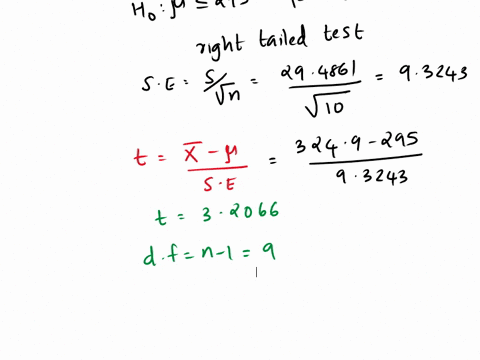 H₀ : μ ≤ 295
right tailed test
S.E = S/√n = 29.4861/√10 = 9.3243
t = (x̄ - μ)/S.E = (324.9 - 295)/9.3243
t = 3.2066
d.f = n-1 = 9